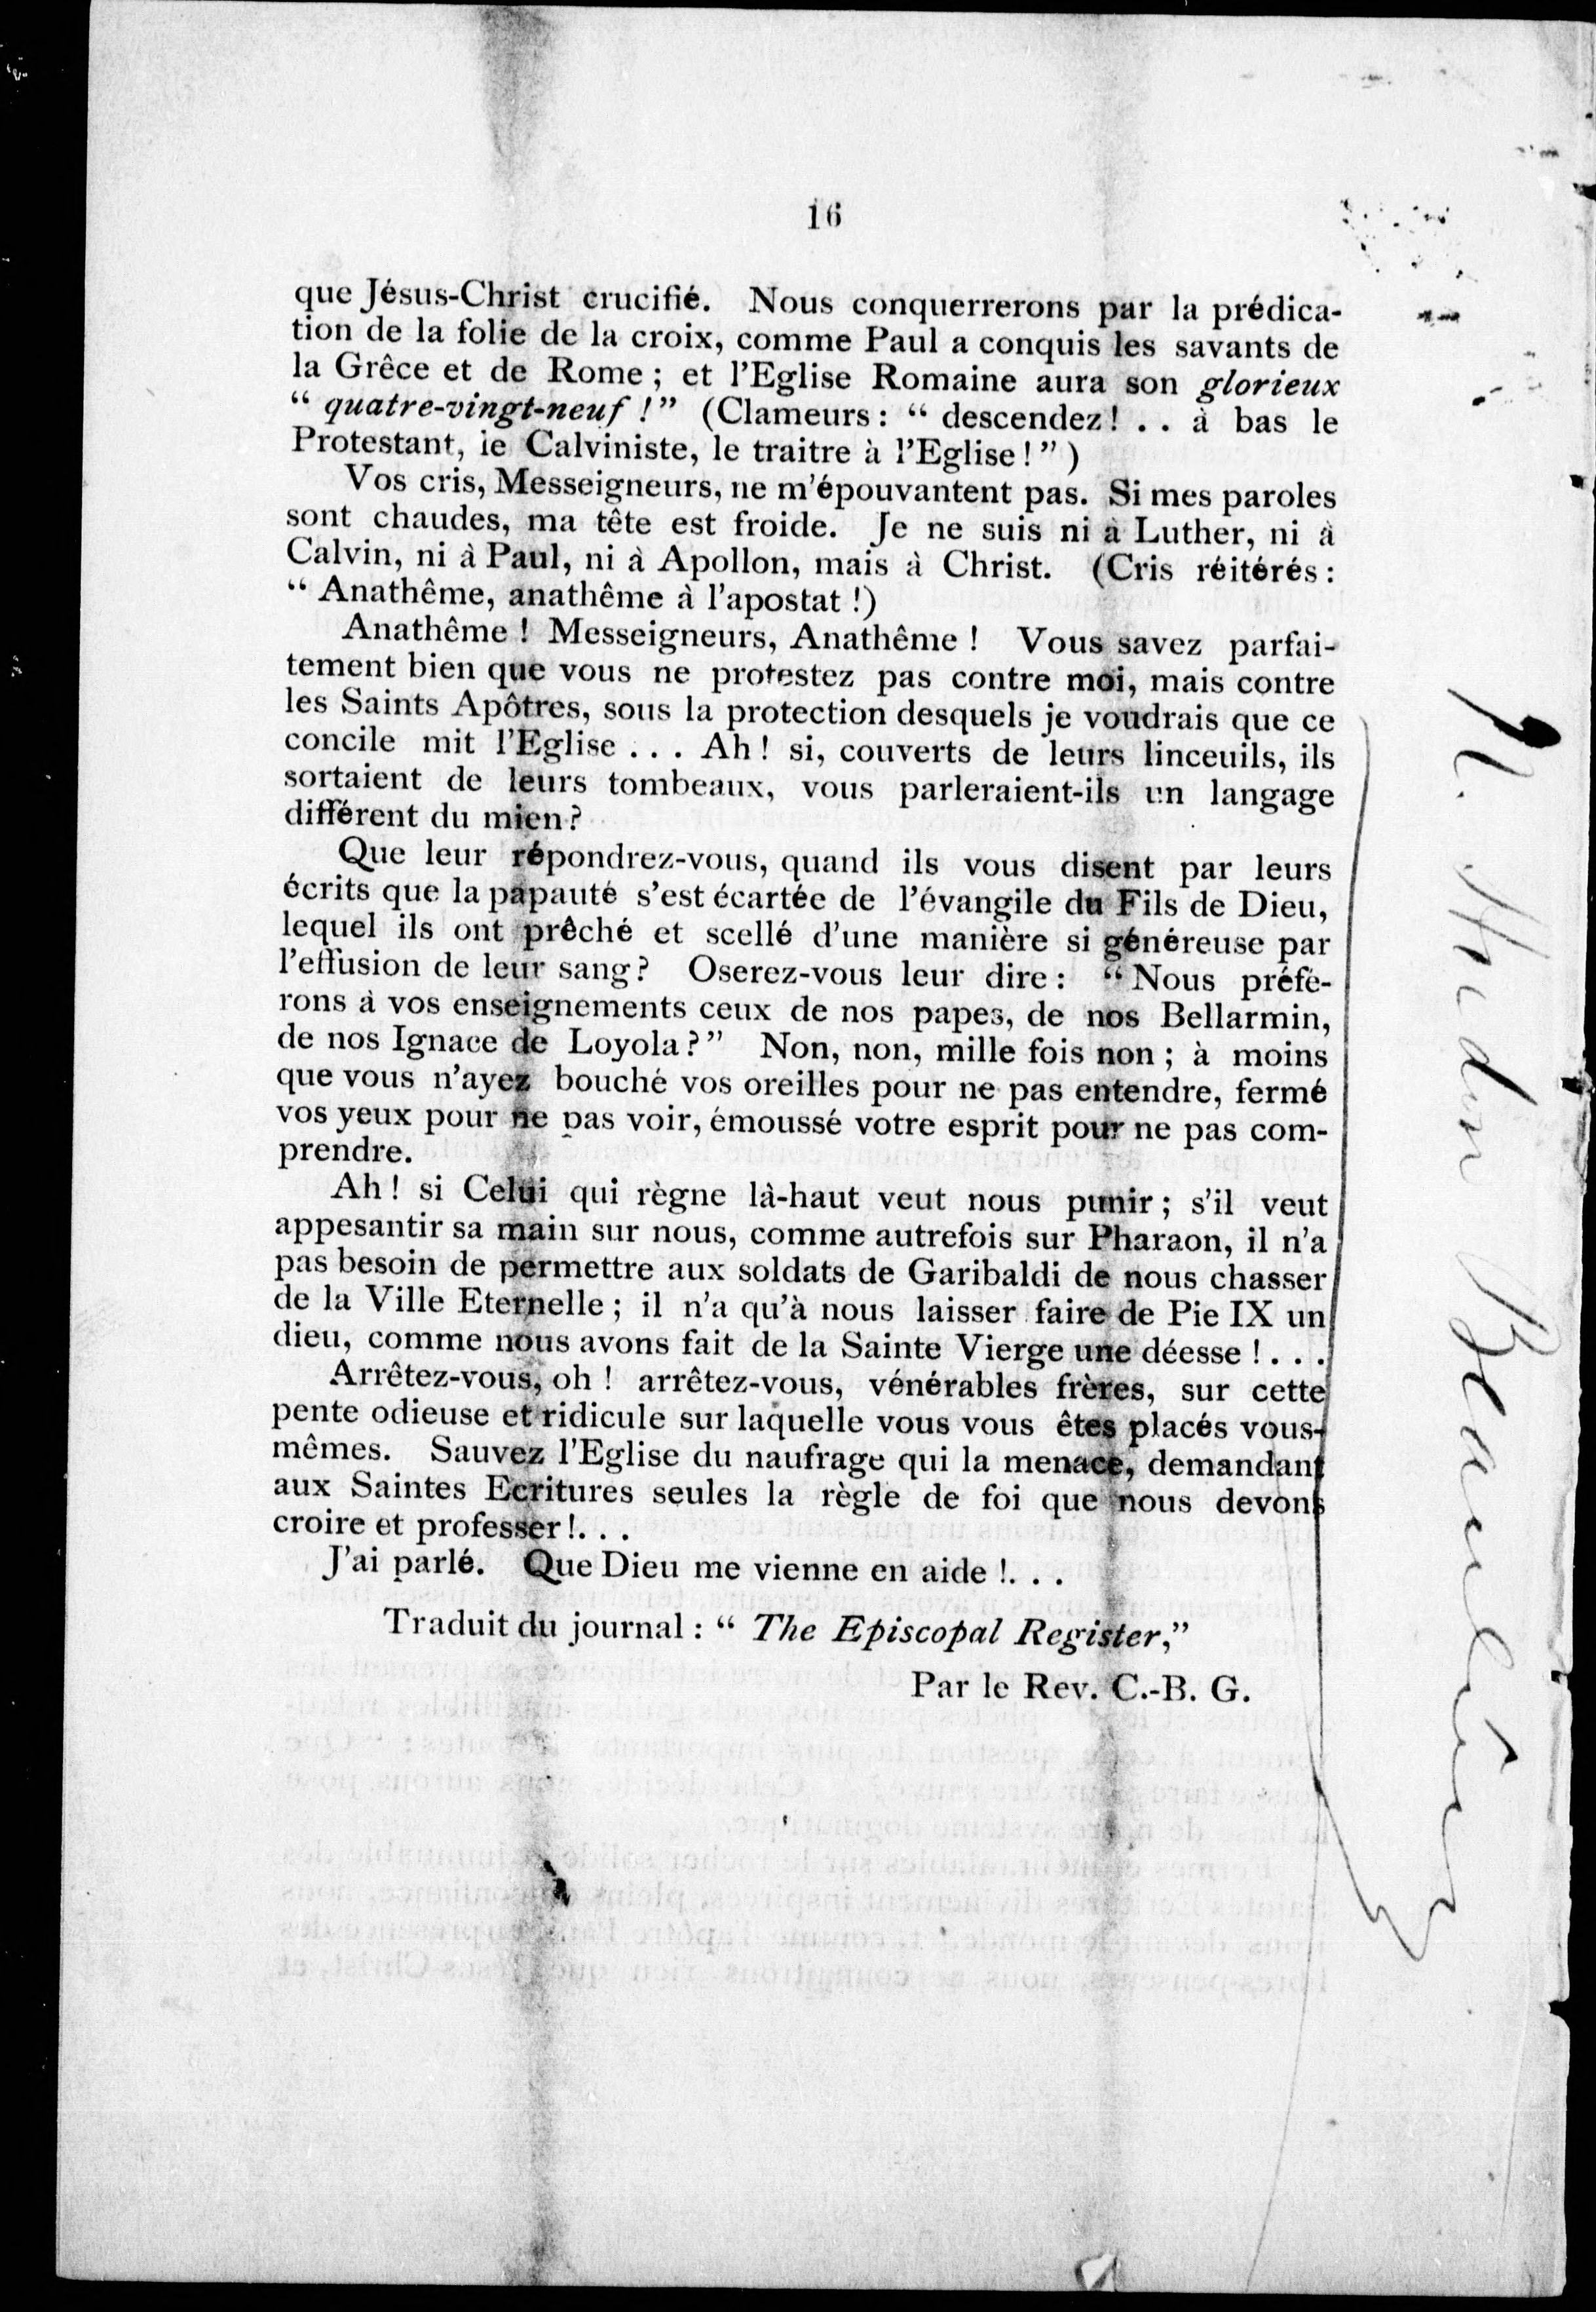 16
que Jésus-Christ crucifié. Nous conquerrerons par la prédica-
tion de la folie de la croix, comme Paul a conquis les savants de
la Grêce et de Rome ; et l'Eglise Romaine aura son glorieux
“ quatre-vingt-neuf ! ” (Clameurs : “ descendez ! . . à bas le
Protestant, ie Calviniste, le traitre à l'Eglise ! ” )
Vos cris, Messeigneurs, ne m'épouvantent pas. Si mes paroles
sont chaudes, ma tête est froide. Je ne suis ni à Luther, ni à
Calvin, ni à Paul, ni à Apollon, mais à Christ. (Cris réitérés :
“ Anathême, anathême à l'apostat !)
Anathême ! Messeigneurs, Anathême ! Vous savez parfai-
tement bien que vous ne protestez pas contre moi, mais contre
les Saints Apôtres, sous la protection desquels je voudrais que ce
concile mit l'Eglise . . . Ah ! si, couverts de leurs linceuils, ils
sortaient de leurs tombeaux, vous parleraient-ils un langage
différent du mien ?
Que leur répondrez-vous, quand ils vous disent par leurs
écrits que la papauté s'est écartée de l'évangile du Fils de Dieu,
lequel ils ont prêché et scellé d'une manière si généreuse par
l'effusion de leur sang ? Oserez-vous leur dire : “ Nous préfé-
rons à vos enseignements ceux de nos papes, de nos Bellarmin,
de nos Ignace de Loyola ? ” Non, non, mille fois non ; à moins
que vous n'ayez bouché vos oreilles pour ne pas entendre, fermé
vos yeux pour ne pas voir, émoussé votre esprit pour ne pas com-
prendre.
Ah ! si Celui qui règne là-haut veut nous punir ; s'il veut
appesantir sa main sur nous, comme autrefois sur Pharaon, il n'a
pas besoin de permettre aux soldats de Garibaldi de nous chasser
de la Ville Eternelle ; il n'a qu'à nous laisser faire de Pie IX un
dieu, comme nous avons fait de la Sainte Vierge une déesse ! . . .
Arrêtez-vous, oh ! arrêtez-vous, vénérables frères, sur cette
pente odieuse et ridicule sur laquelle vous vous êtes placés vous-
mêmes. Sauvez l'Eglise du naufrage qui la menace, demandant
aux Saintes Ecritures seules la règle de foi que nous devons
croire et professer ! . . .
J'ai parlé. Que Dieu me vienne en aide ! . . .
Traduit du journal : “ The Episcopal Register,”
Par le Rev. C.-B. G.